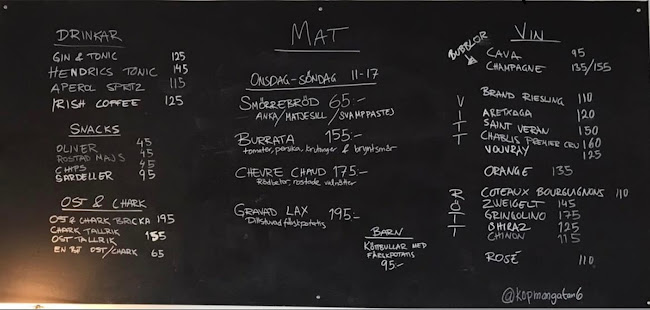 DRINKAR
GIN & TONIC 125
HENDRICS TONIC 145
APEROL SPRTZ 115
IRISH COFFEE 125
SNACKS
OLIVER 45
ROSTAD MAJS 45
CHIPS 45
SARDELLER 95
OST & CHARK
OST & CHARK BRICKA 195
CHARK TALLRIK
OST TALLRIK 155
EN BIT OST/CHARK 65
MAT
ONSDAG-SÖNDAG 11-17
SMÖRREBRÖD 65:-
ANKA/MATJESILL/SVAMPPASTEJ
BURRATA 155:-
tomater, persika, krutonger & brynt smör
CHEVRE CHAUD 175:-
Rödbetor, rostade valnötter
GRAVAD LAX 195:-
Dillstuvad färskpotatis
BARN
KÖTTBULLAR MED
FÄRSKPOTATIS
95:-
VIN
BUBBLOR
CAVA 95
CHAMPAGNE 135/155
VITT
BRAND RIESLING 110
ARETXAGA 120
SAINT VERAN 150
CHABLIS PREMIER CRU 160
VOUVRAY 125
ORANGE 135
RÖTT
COTEAUX BOURGUIGNONS 110
ZWEIGELT 145
GRINGOLINO 175
SHIRAZ 125
CHINON 115
ROSÉ 110
@kopmangatan6